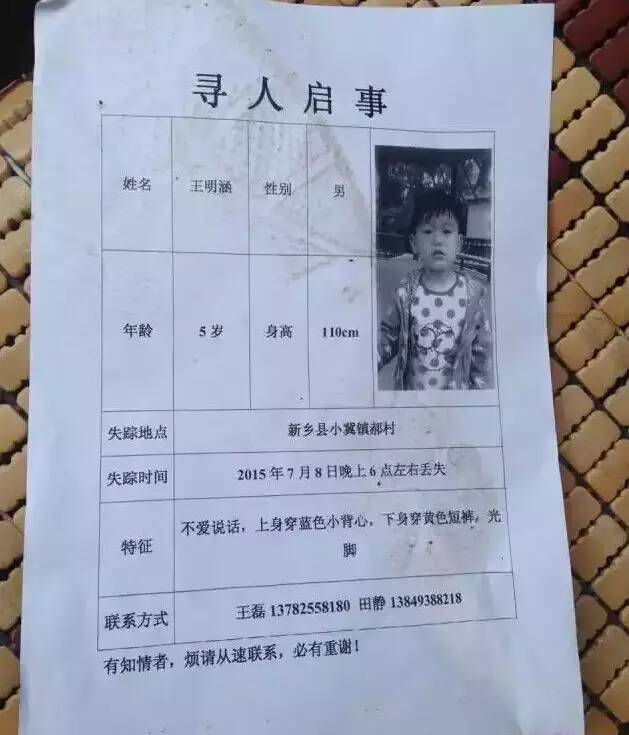 寻人启事
姓名 王明涵 性别 男
年龄 5岁 身高 110cm
失踪地点 新乡县小冀镇郝村
失踪时间 2015年7月8日晚上6点左右丢失
特征 不爱说话，上身穿蓝色小背心，下身穿黄色短裤，光
脚
联系方式 王磊 13782558180 田静 13849388218
有知情者，烦请从速联系，必有重谢！